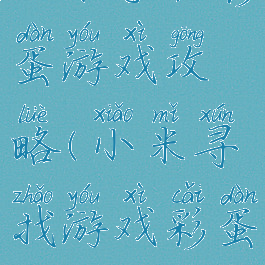 dàn yóu xì gōng
蛋游戏攻
lüè xiǎo mǐ xún
略(小米寻
zhǎo yóu xì cǎi dàn
找游戏彩蛋